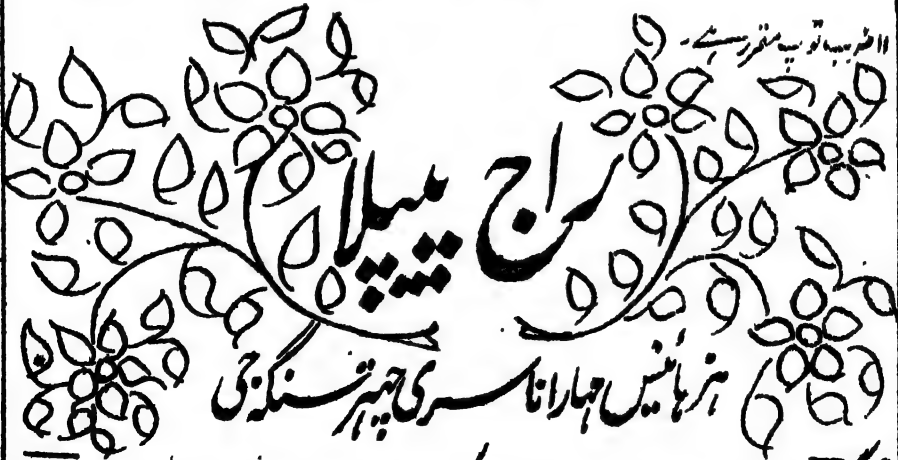 ۱۱ ضرب توپ مقرر ہے۔
راج پیپلا
ہز ہائنس مہارانا سری چہتر سنگہ جی